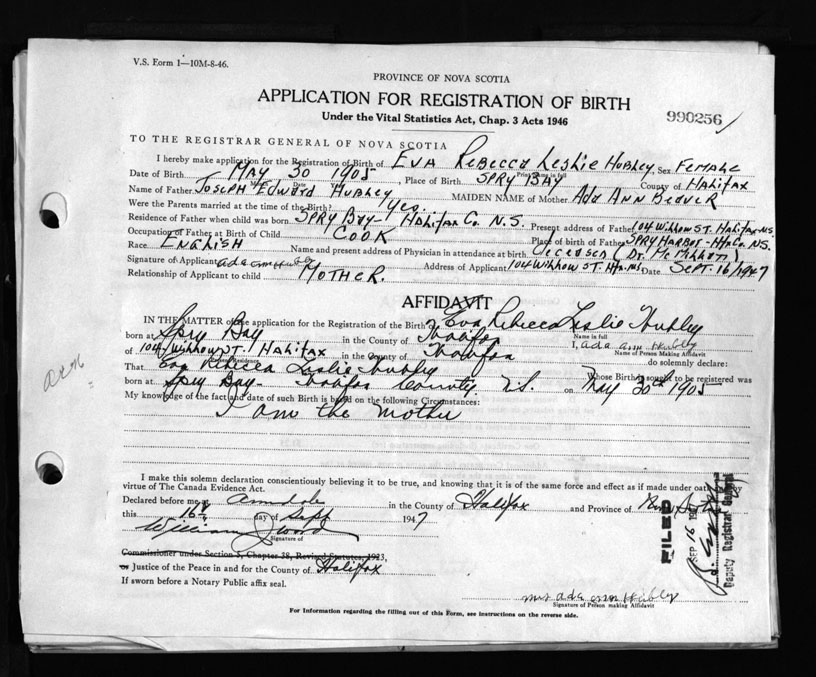 V.S. Form 1—10M-8-46.
PROVINCE OF NOVA SCOTIA
APPLICATION FOR REGISTRATION OF BIRTH
990256
Under the Vital Statistics Act, Chap. 3 Acts 1946
TO THE REGISTRAR GENERAL OF NOVA SCOTIA
I hereby make application for the Registration of Birth of Eva Rebecca Leslie Hubley Sex Female
Print name in full
Date of Birth May 30 1905, Place of Birth Spry Bay County of Halifax
Month Date Year
Name of Father Joseph Edward Hubley MAIDEN NAME of Mother Ada Ann Beaver
Were the Parents married at the time of the Birth? Yes.
Residence of Father when child was born Spry Bay - Halifax Co. N.S. Present address of Father 104 Willow St. Halifax N.S.
Occupation of Father at Birth of Child Cook Place of birth of Father Spry Harbor - Hfx Co. N.S.
Race English Name and present address of Physician in attendance at birth deceased (Dr. McMillan)
Signature of Applicant ada ann Hubly Address of Applicant 104 Willow St. Hfx. N.S. Date Sept. 16/1947
Relationship of Applicant to child Mother.
AFFIDAVIT
IN THE MATTER of the application for the Registration of the Birth of Eva Rebecca Leslie Hubley
Name in full
born at Spry Bay in the County of Halifax I, ada ann Hubly
Name of Person Making Affidavit
of 104 Willow St. Halifax in the County of Halifax do solemnly declare:
Residence
That Eva Rebecca Leslie Hubley Whose Birth is sought to be registered was
born at Spry Bay - Halifax County N.S. on May 30th 1905
My knowledge of the fact and date of such Birth is based on the following Circumstances:
I am the mother
I make this solemn declaration conscientiously believing it to be true, and knowing that it is of the same force and effect as if made under oath by
virtue of The Canada Evidence Act.
Declared before me at Armdale in the County of Halifax and Province of Nova Scotia
this 16th day of Sept 1947
William J Wood
Signature of
Commissioner under Section 5, Chapter 38, Revised Statutes, 1923,
or Justice of the Peace in and for the County of Halifax
If sworn before a Notary Public affix seal.
mrs ada ann Hubley
Signature of Person making Affidavit
For Information regarding the filling out of this Form, see instructions on the reverse side.
FILED
SEP 16 1947
Deputy Registrar General